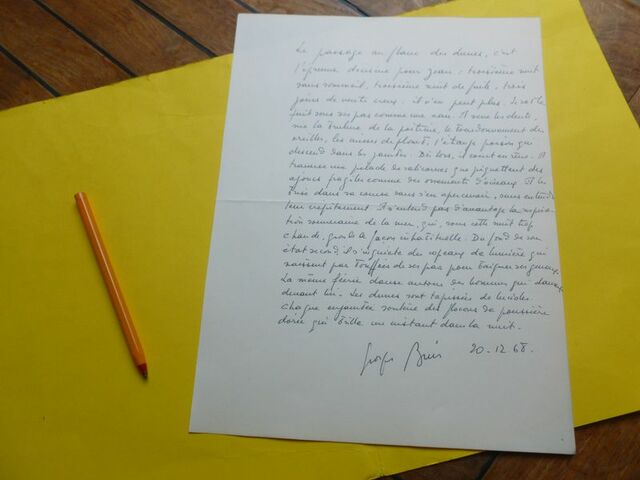 Le passage au flanc des dunes, c'est
l'épreuve décisive pour Jean : troisième nuit
sans sommeil, troisième nuit de fuite, trois
jours de ventre creux : il n'en peut plus. Le sable
fuit sous ses pas comme une eau. Il serre les dents,
sur la brûlure de la poitrine, le bourdonnement des
oreilles, les aisselles de plomb, l'étrange poison qui
descend dans les jambes. Dès lors, il court en rêve. Il
traverse une pelade de salicornes que piquettent des
ajoncs fragiles comme des ossements d'oiseaux. Il les
brise dans sa course sans s'en apercevoir, sans entendre
leur crépitement. Il n'entend pas davantage la respira-
tion souveraine de la mer, qui, sous cette nuit trop
chaude, gronde de façon inhabituelle. Du fond de son
état second il s'inquiète du rideau de lumière qui
naissent par touffes de ses pas pour baigner ses genoux.
La même féerie danse autour des hommes qui
devant lui. Les dunes sont tapissées de lucioles.
Chaque enjambée soulève des flocons de poussière
dorée qui brille un instant dans la nuit.
Georges 20-12-68.